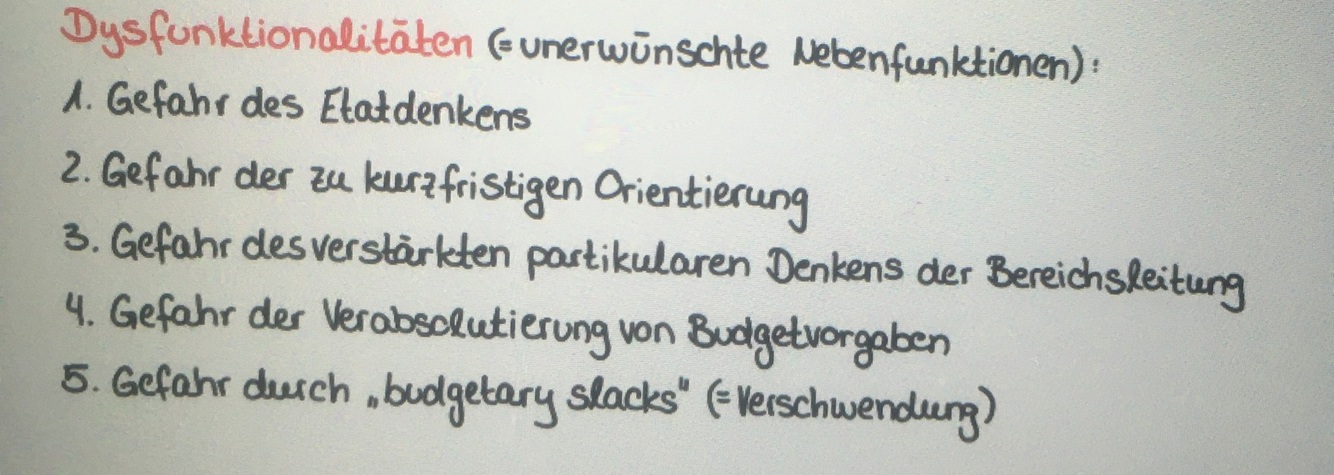 Dysfunktionalitäten (= unerwünschte Nebenfunktionen):
1. Gefahr des Etatdenkens
2. Gefahr der zu kurzfristigen Orientierung
3. Gefahr des verstärkten partikularen Denkens der Bereichsleitung
4. Gefahr der Verabsolutierung von Budgetvorgaben
5. Gefahr durch „budgetary slacks" (= Verschwendung)